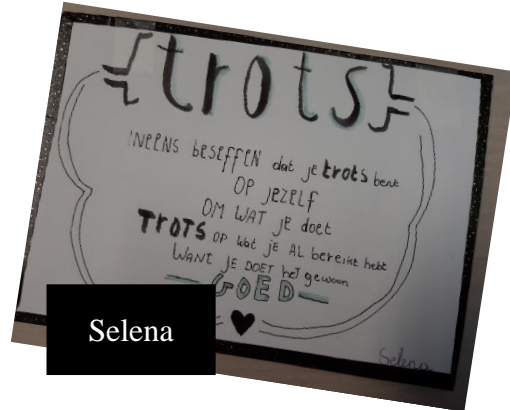 {trots}
INEENS BESEFFEN dat je trots bent
OP JEZELF
OM WAT JE doet
TROTS OP wat je AL bereikt hebt
WANT JE DOET het gewoon
GOED
Selena
Selena